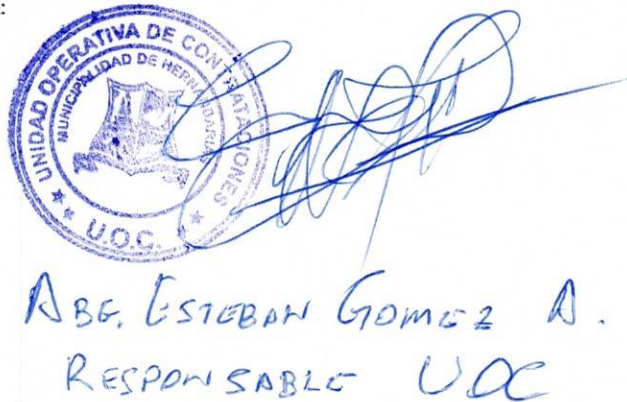 :
UNIDAD OPERATIVA DE CONTRATACIONES
MUNICIPALIDAD DE HERNANDARIAS
U.O.C.
ABG. ESTEBAN GOMEZ A.
RESPONSABLE UOC